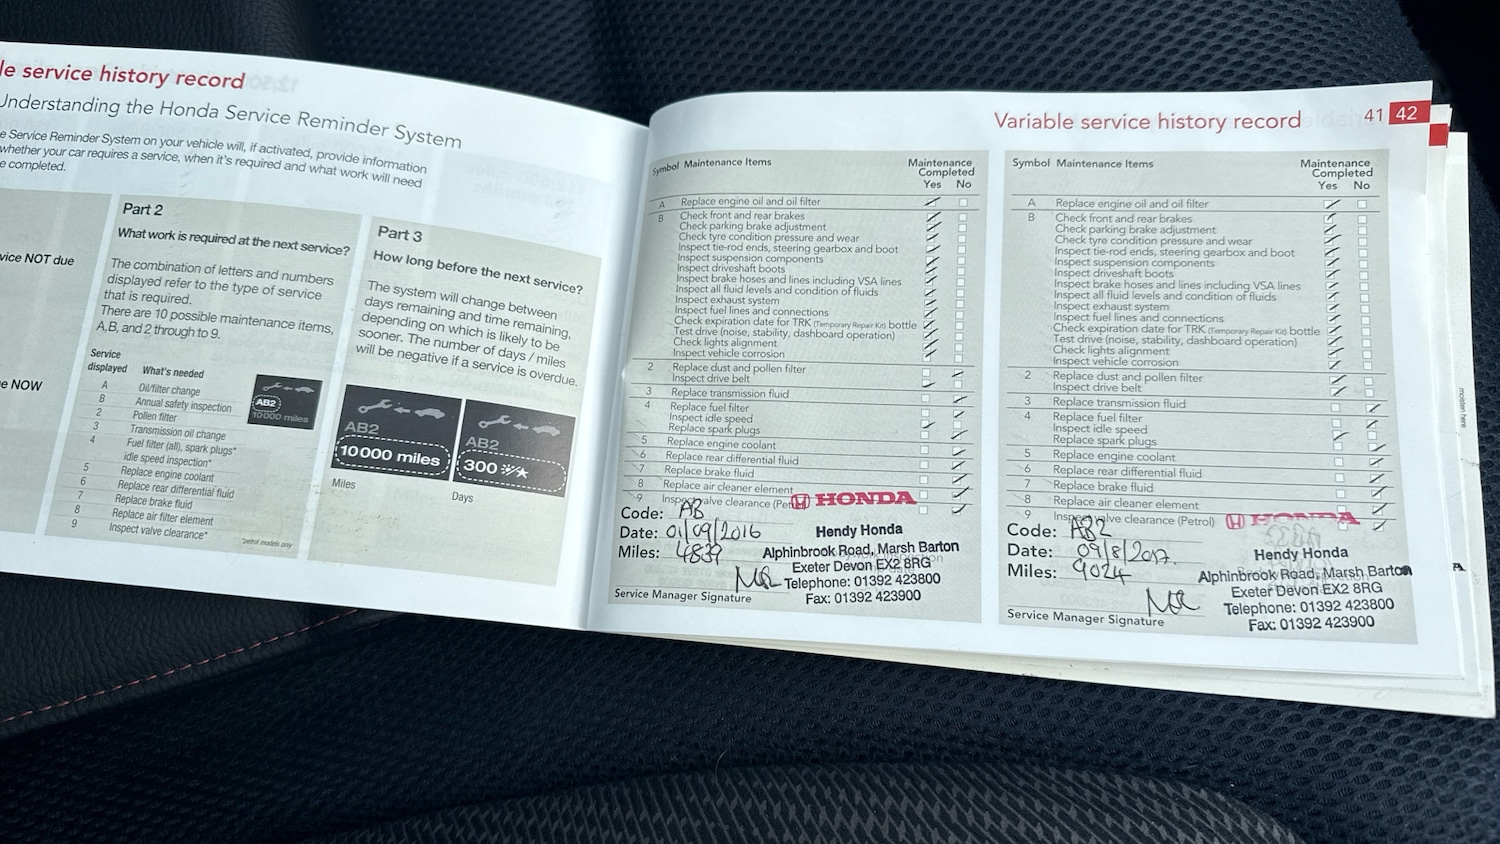 le service history record
Understanding the Honda Service Reminder System
e Service Reminder System on your vehicle will, if activated, provide information
whether your car requires a service, when it's required and what work will need
e completed.
vice NOT due
e NOW
Part 2
What work is required at the next service?
The combination of letters and numbers
displayed refer to the type of service
that is required.
There are 10 possible maintenance items,
A,B, and 2 through to 9.
Service
displayed What's needed
A Oil/filter change
B Annual safety inspection
2 Pollen filter
3 Transmission oil change
4 Fuel filter (all), spark plugs*
idle speed inspection*
5 Replace engine coolant
6 Replace rear differential fluid
7 Replace brake fluid
8 Replace air filter element
9 Inspect valve clearance*
*petrol models only
AB2
10000 miles
Part 3
How long before the next service?
The system will change between
days remaining and time remaining,
depending on which is likely to be
sooner. The number of days / miles
will be negative if a service is overdue.
AB2
10000 miles
AB2
300
Miles
Days
Variable service history record 41 42
Symbol Maintenance Items Maintenance
Completed
Yes No
A Replace engine oil and oil filter
B Check front and rear brakes
Check parking brake adjustment
Check tyre condition pressure and wear
Inspect tie-rod ends, steering gearbox and boot
Inspect suspension components
Inspect driveshaft boots
Inspect brake hoses and lines including VSA lines
Inspect all fluid levels and condition of fluids
Inspect exhaust system
Inspect fuel lines and connections
Check expiration date for TRK (Temporary Repair Kit) bottle
Test drive (noise, stability, dashboard operation)
Check lights alignment
Inspect vehicle corrosion
2 Replace dust and pollen filter
Inspect drive belt
3 Replace transmission fluid
4 Replace fuel filter
Inspect idle speed
Replace spark plugs
5 Replace engine coolant
6 Replace rear differential fluid
7 Replace brake fluid
8 Replace air cleaner element
9 Inspect valve clearance (Pet
HONDA
Code: AB
Date: 01/09/2016
Miles: 4839
Hendy Honda
Alphinbrook Road, Marsh Barton
Exeter Devon EX2 8RG
Telephone: 01392 423800
Fax: 01392 423900
Service Manager Signature
Symbol Maintenance Items Maintenance
Completed
Yes No
A Replace engine oil and oil filter
B Check front and rear brakes
Check parking brake adjustment
Check tyre condition pressure and wear
Inspect tie-rod ends, steering gearbox and boot
Inspect suspension components
Inspect driveshaft boots
Inspect brake hoses and lines including VSA lines
Inspect all fluid levels and condition of fluids
Inspect exhaust system
Inspect fuel lines and connections
Check expiration date for TRK (Temporary Repair Kit) bottle
Test drive (noise, stability, dashboard operation)
Check lights alignment
Inspect vehicle corrosion
2 Replace dust and pollen filter
Inspect drive belt
3 Replace transmission fluid
4 Replace fuel filter
Inspect idle speed
Replace spark plugs
5 Replace engine coolant
6 Replace rear differential fluid
7 Replace brake fluid
8 Replace air cleaner element
9 Inspect valve clearance (Petrol)
HONDA
Code: AB2
Date: 09/8/2017.
Miles: 9024
Hendy Honda
Alphinbrook Road, Marsh Barton
Exeter Devon EX2 8RG
Telephone: 01392 423800
Fax: 01392 423900
Service Manager Signature